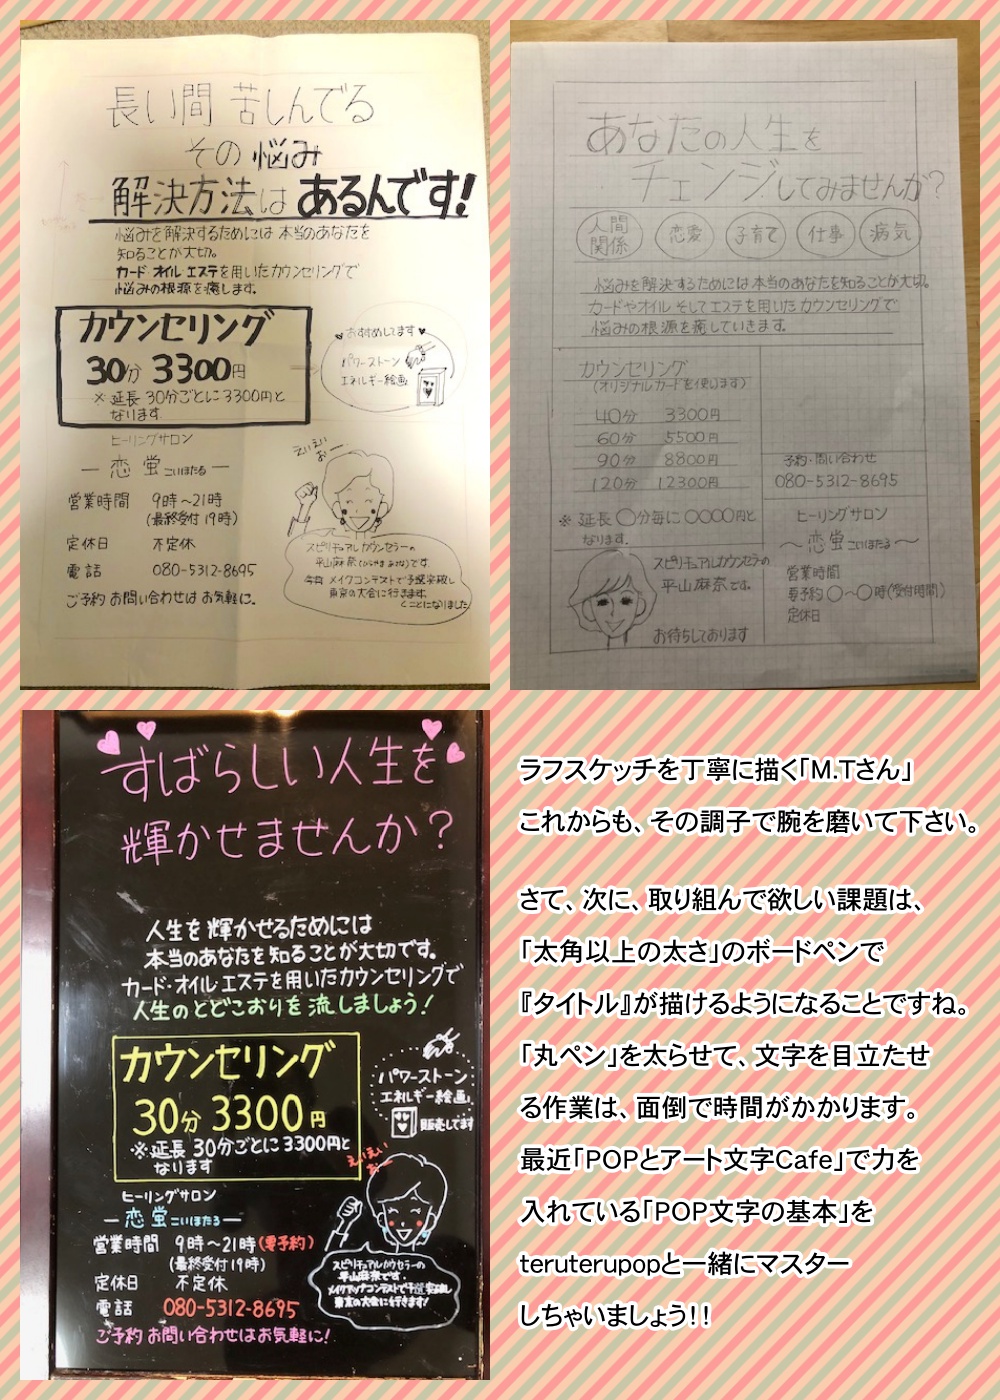 長い間 苦しんでる
その 悩み
解決方法は あるんです!
悩みを解決するためには 本当のあなたを
知ることが大切。
カード・オイル エステを用いたカウンセリングで
悩みの根源を癒します。
カウンセリング
30分 3300円
※ 延長 30分ごとに3300円と
なります
♥おすすめしてます♥
パワーストーン
エネルギー絵画
ヒーリングサロン
― 恋蛍 こいほたる ―
営業時間 9時～21時
(最終受付 19時)
定休日 不定休
電話 080-5312-8695
ご予約 お問い合わせは お気軽に。
えいえい
おー
スピリチュアルカウンセラーの
平山麻奈です。
今向 メイクコンテストで予選突破し
東京の大会に行きます。
くことになりました
あなたの人生を
チェンジしてみませんか?
人間
関係
恋愛
子育て
仕事
病気
悩みを解決するためには本当のあなたを知ることが大切。
カードやオイル そしてエステを用いたカウンセリングで
悩みの根源を癒していきます。
カウンセリング
(オリジナルカードを使います)
40分 3300円
60分 5500円
90分 8800円
120分 12300円
※ 延長〇分毎に〇〇〇〇円と
なります.
予約・問い合わせ
080-5312-8695
ヒーリングサロン
～ 恋蛍 こいほたる ～
営業時間
要予約〇～〇時(受付時間)
定休日
スピリチュアルカウンセラの
平山麻奈です.
お待ちしております
すばらしい人生を
輝かせませんか?
人生を輝かせるためには
本当のあなたを知ることが大切です。
カード・オイル・エステを用いたカウンセリングで
人生のとどこおりを流しましょう!
カウンセリング
30分 3300円
※延長 30分ごとに3300円と
なります
パワーストーン
エネルギー絵画
販売してます
ヒーリングサロン
― 恋蛍 こいほたる ―
営業時間 9時～21時(要予約)
(最終受付19時)
定休日 不定休
電話 080-5312-8695
ご予約 お問い合わせはお気軽に!
えいえい
おー
スピリチュアルカウセラーの
平山麻奈です。
メイクアップコンテストで予選突破し
東京の大会に行きます!
ラフスケッチを丁寧に描く「M.Tさん」
これからも、その調子で腕を磨いて下さい。
さて、次に、取り組んで欲しい課題は、
「太角以上の太さ」のボードペンで
『タイトル』が描けるようになることですね。
「丸ペン」を太らせて、文字を目立たせ
る作業は、面倒で時間がかかります。
最近「POPとアート文字Cafe」で力を
入れている「POP文字の基本」を
teruterupopと一緒にマスター
しちゃいましょう!!